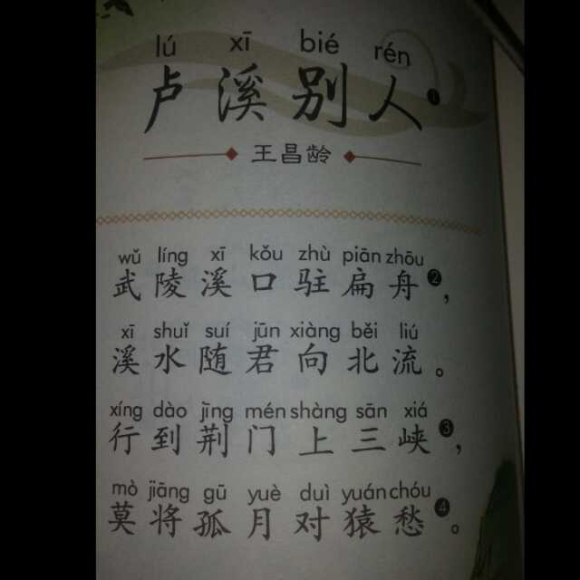 lú xī bié rén
卢溪别人❶
王昌龄
wǔ líng xī kǒu zhù piān zhōu
武陵溪口驻扁舟❷，
xī shuǐ suí jūn xiàng běi liú
溪水随君向北流。
xíng dào jīng mén shàng sān xiá
行到荆门上三峡❸，
mò jiāng gū yuè duì yuán chóu
莫将孤月对猿愁❹。